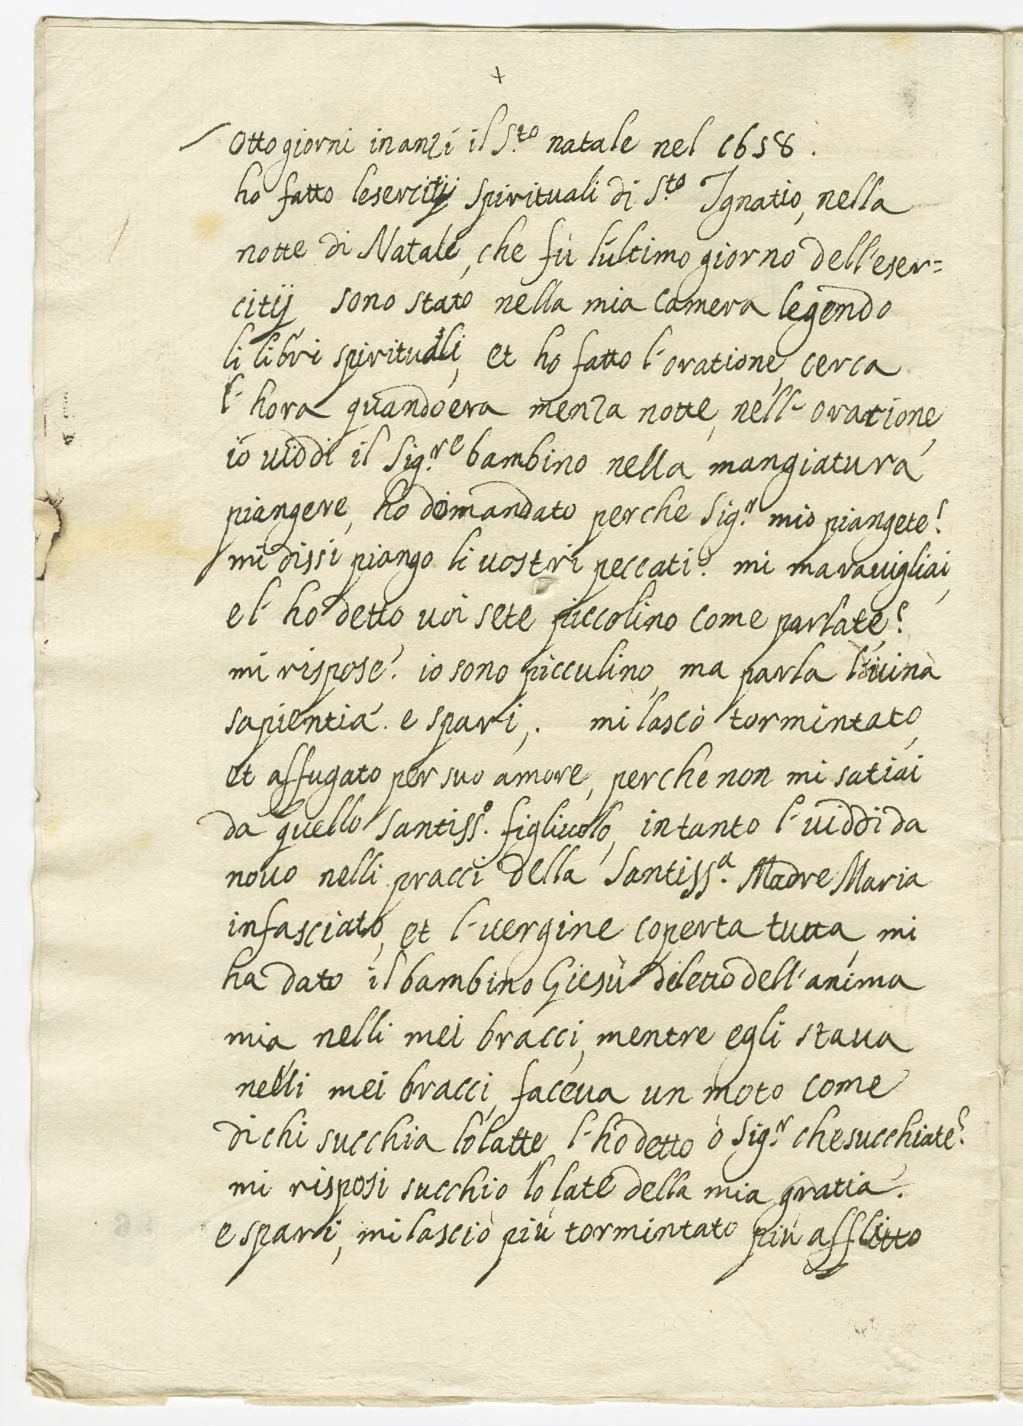 +
Otto giorni inanzi il S.to natale nel 1658.
ho fatto lesercitij spirituali di S.to Ignatio, nella
notte di Natale, che fù lùltimo giorno dell'eser=
citij sono stato nella mia camera legendo
li libri spirituali, et ho fatto l'oratione, cerca
l'hora quando era menza notte, nell'oratione,
io viddi il Sig.re bambino nella mangiatura
piangere, ho domandato perche Sig.r mio piangete?
mi dissi piango li vostri peccati: mi maravigliai,
e l'ho detto voi sete piccolino come parlate?
mi rispose: io sono picculino, ma parla la divina
sapientia. e sparì,. mi lasciò tormintato,
et affugato per suo amore, perche non mi satiai
da quello santiss.o figliuolo, intanto l'viddi da
novo nelli pracci della Santiss.a Madre Maria
infasciato, et l'vergine coperta tutta, mi
ha dato il bambino Giesù diletto dell'anima
mia, nelli mei bracci, mentre egli stava
nelli mei bracci, faceva un moto come
di chi succhia lo latte, l'ho detto ò Sig.r che succhiate?
mi risposi succhio lo late della mia gratia.
e sparì, mi lasciò più tormintato più afflitto